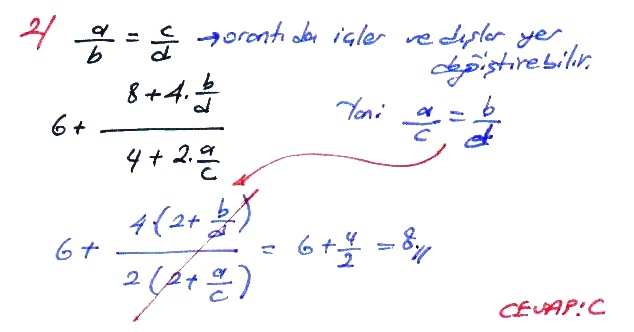 2) a/b = c/d → orantıda içler ve dışlar yer
değiştirebilir.
6 + (8 + 4 . b/d) / (4 + 2 . a/c)
Yani a/c = b/d
6 + 4 . (2 + b/d) / 2 (2 + a/c) = 6 + 4/2 = 8 //
CEVAP: C